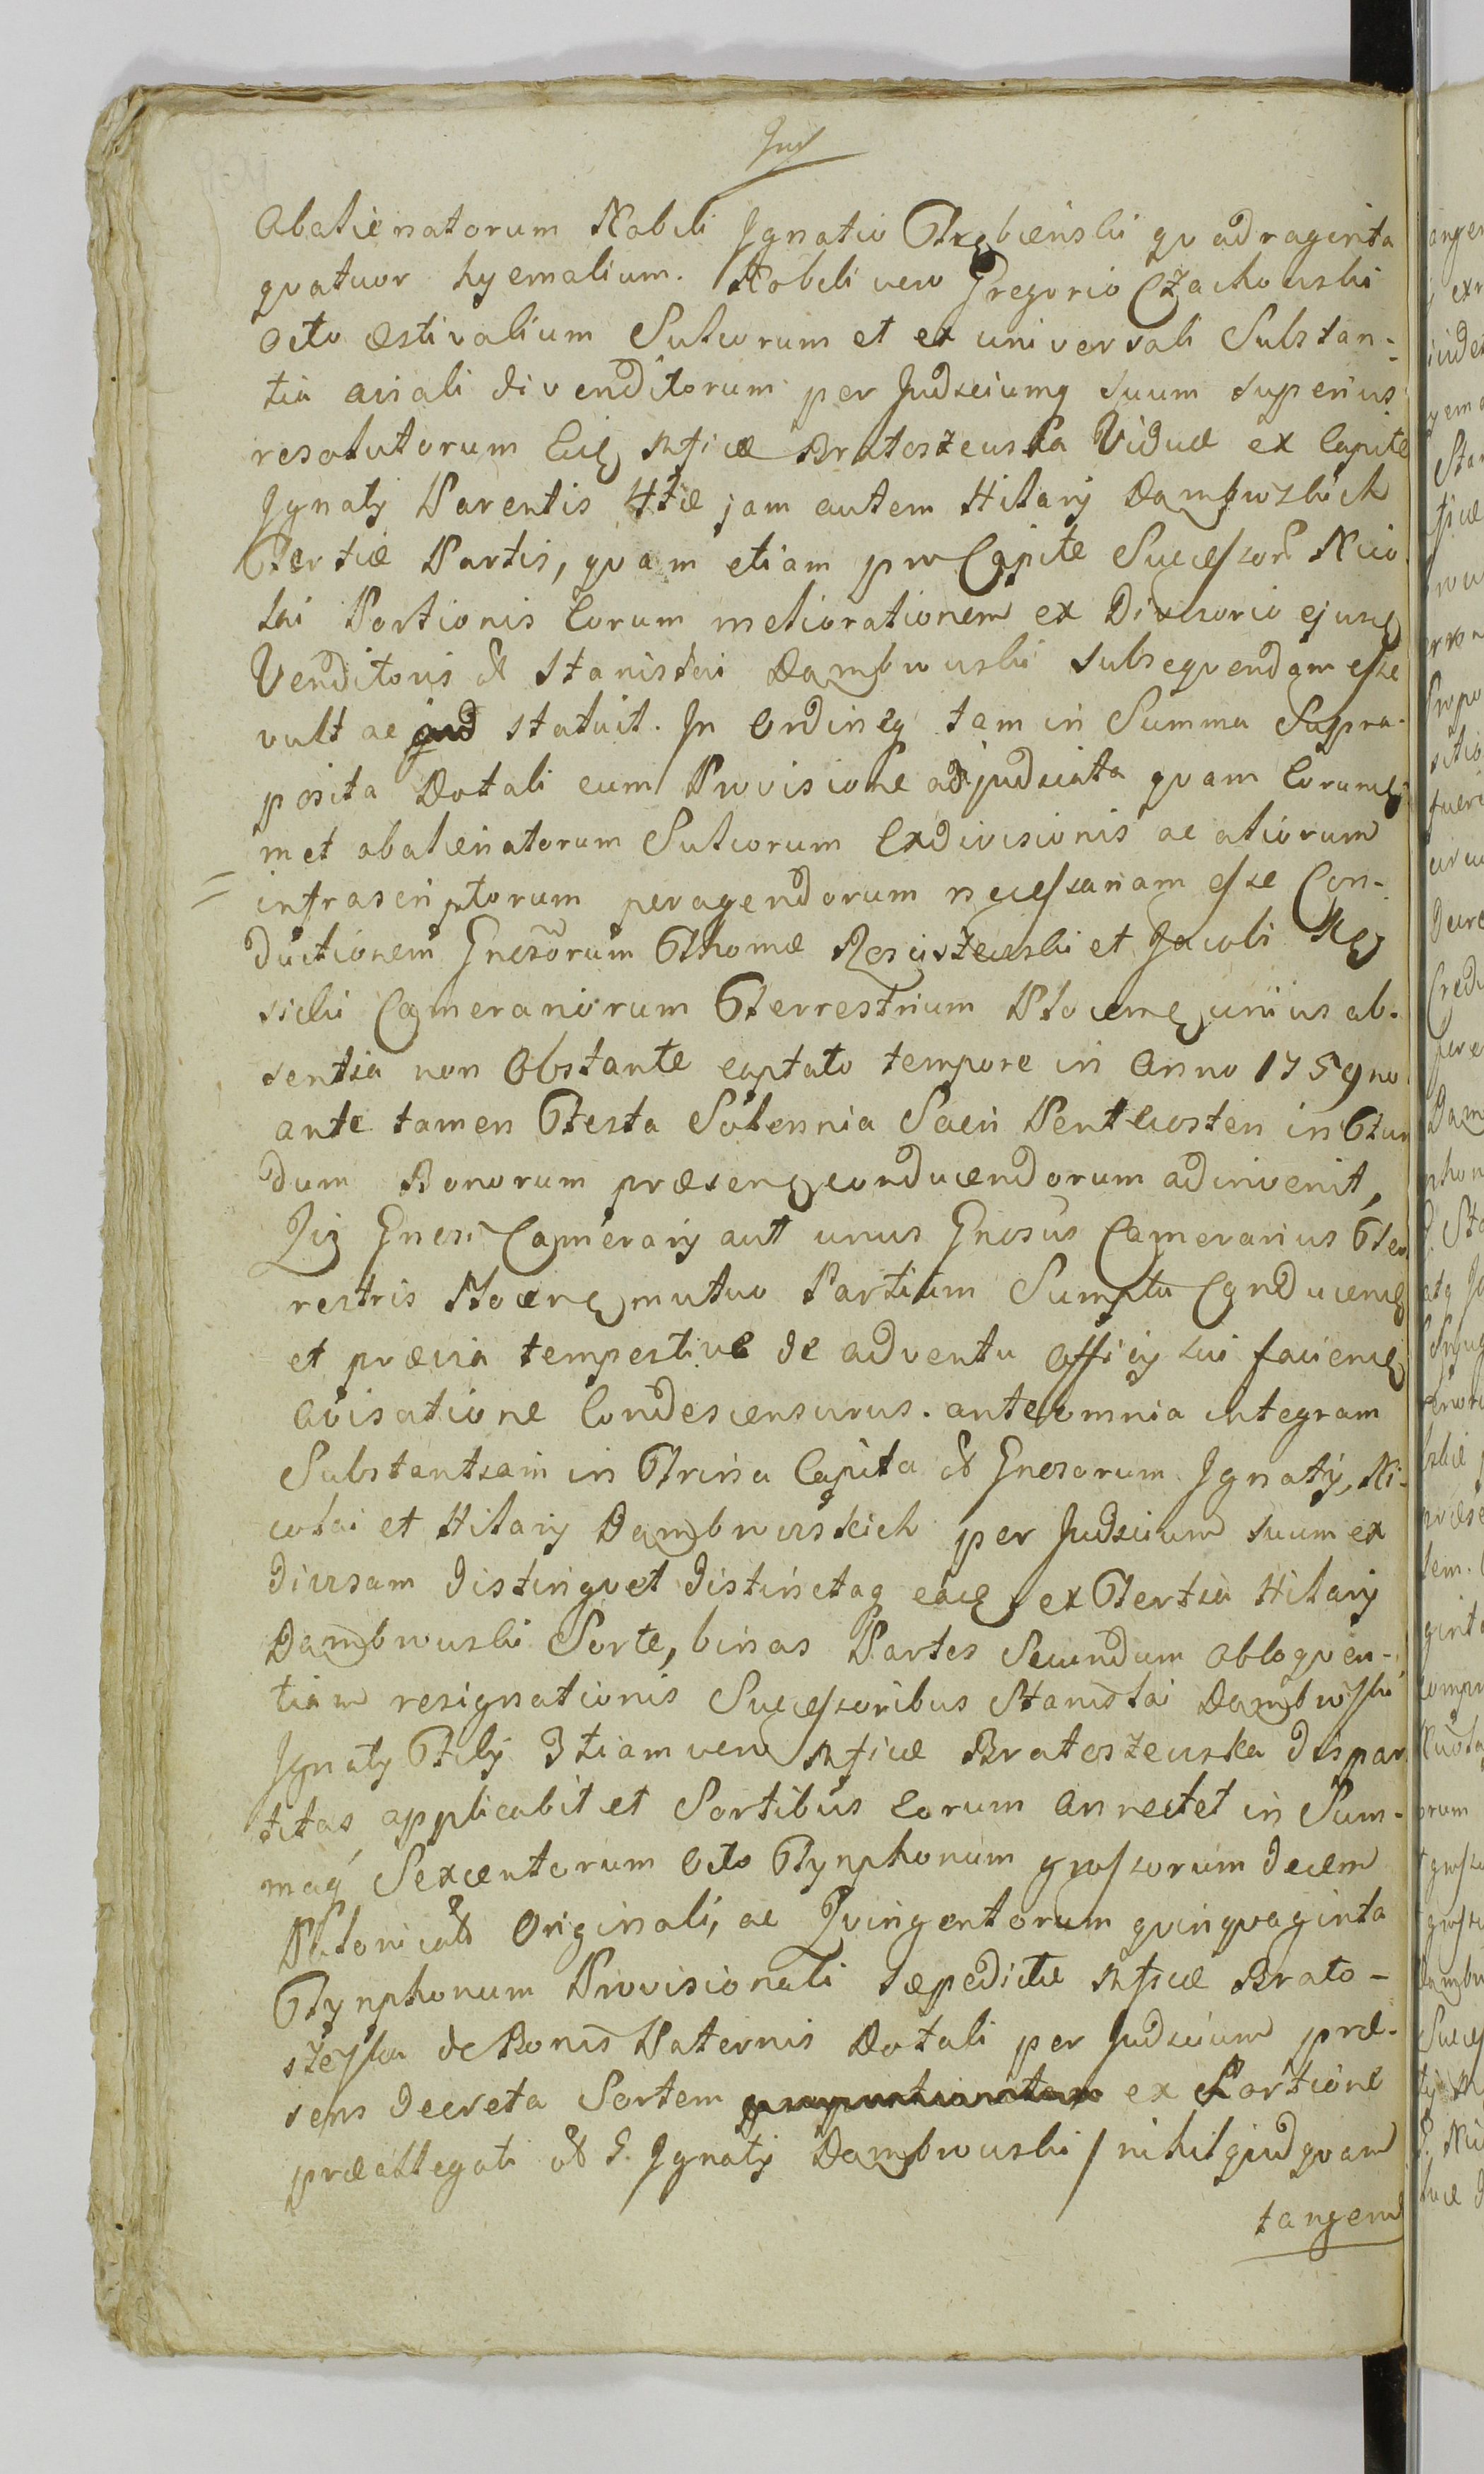 Abalienatorum Nobili Jgnatio Trębienski qvadraginta
qvatuor hyemalium. Nobili vero Gregorio Czachowski
octo æstivalium Sulcorum et ex universali Substan-
tia aviali divenditorum per Judicium suum superius
resolutorum Mficæ Bratoszewska Viduæ ex Capite
Jgnatij Parentis jam autem Hilarij Dambrowskich
Tertiæ Partis, qvam etiam pro Capite Successor Nico
lai Portionis Eorum meliorationem ex Divisorio ejusq
Venditoris & Stanislai Dambrowski subseqvendam esse
vult ac statuit. In Ordineq tam in Summa Supra-
posita Dotali cum Provisione adjudicata qvam Eorumq
met abalienatorum Sulcorum Exdivisionis ac aliorum
infrascriptorum peragendorum necessariam esse Con-
ductionem Gnosorum Thomæ Rosciszewski et Jacobi
sicki Camerariorum Terrestrium Plocens unius ab-
sentia non Obstante captato tempore in Anno 1759no
ante tamen Festa Solennia Sacri Pentecosten in Fun
dum Bonorum præsens conducendorum adinvenit,
Qui Gnosi Camerarij aut unus Gnosus Camerarius Ter
restris Plocens mutuo Partium Sumptu Conducend
et prævia tempestive de adventu Officij sui faciend
Avisatione Condescensurus. ante omnia integram
Substantiam in Trina Capita & Gnosorum Jgnatij, Ni-
colai et Hilarij Dambrowskich per Judicium suum ex
divisam distingvet distinctaq ex Tertia Hilarij
Dambrowski Sorte, binas Partes Secundum obloqven-
tiam resignationis Successoribus Stanislai Dambrowski
Jgnatij Filij 3tiam vero Mficæ Bratoszewska dispar
titas applicabit et Sortibus Eorum Annectet in Sum-
maq Sexcentorum Octo Tynphonum grossorum decem
Originali, ac Qvingentorum qvinqvaginta
Tynphonum Provisionali sæpedictæ Mficæ Brato-
szewska de Bonis Paternis Dotali per Judicium præ-
sens decreta Sortem ex Portione
præallegati & G. Jgnatij Dambrowski / nihil qvidqvam
tangend